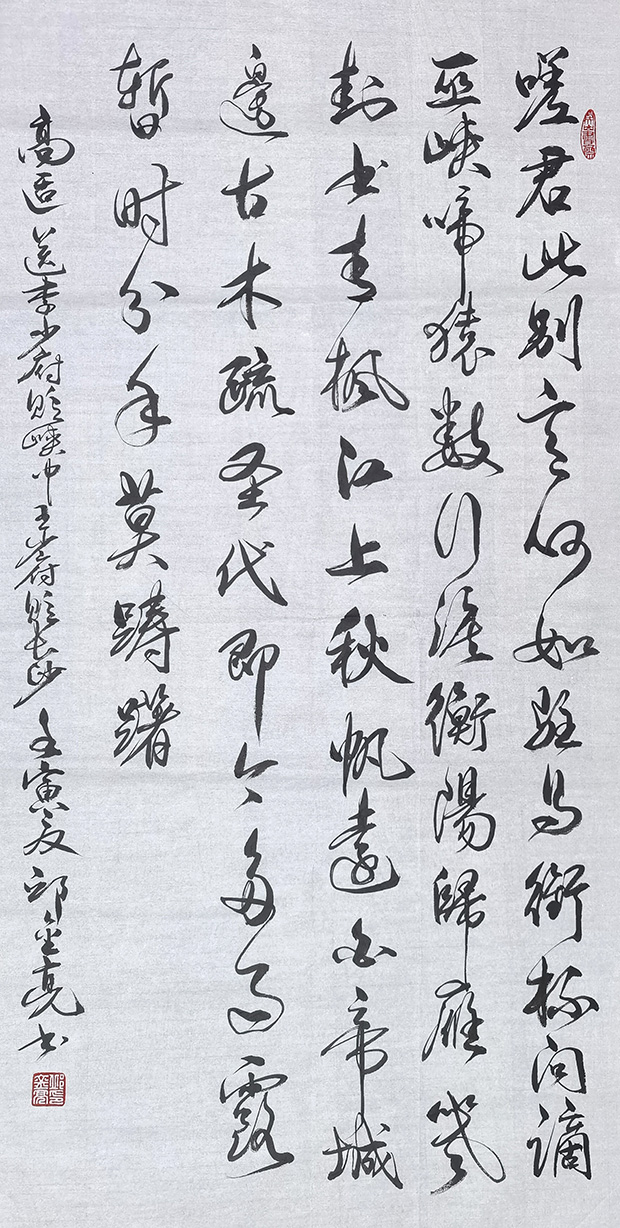 嗟君此别意何如駐马銜杯问谪
巫峡啼猿数行淚衡陽歸雁幾
封书青枫江上秋帆遠白帝城
邊古木疏圣代即今多雨露
暫时分手莫踌躇
高适送李少府貶峡中王少府貶长沙 壬寅夏 邱金亮书